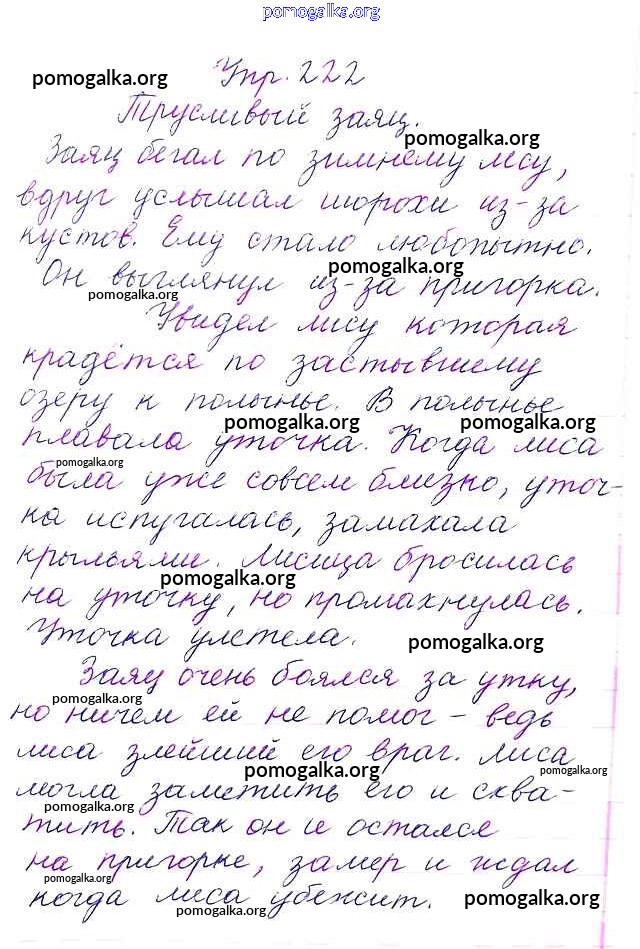 pomogalka.org
Упр. 222
pomogalka.org
Трусливый заяц.
pomogalka.org
Заяц бегал по зимнему лесу,
вдруг услышал шорохи из-за
кустов. Ему стало любопытно.
pomogalka.org
Он выглянул из-за пригорка.
pomogalka.org
Увидел лису которая
крадётся по застывшему
озеру к полынье. В полынье
pomogalka.org pomogalka.org
плавала уточка. Когда лиса
pomogalka.org
была уже совсем близко, уточ-
ка испугалась, замахала
крыльями. Лисица бросилась
pomogalka.org
на уточку, но промахнулась.
Уточка улетела.
pomogalka.org
Заяц очень боялся за утку,
pomogalka.org
но ничем ей не помог - ведь
лиса злейший его враг. Лиса
pomogalka.org pomogalka.org
могла заметить его и схва-
pomogalka.org
тить. Так он и остался
на пригорке, замер и ждал
pomogalka.org
когда лиса убежит.
pomogalka.org pomogalka.org